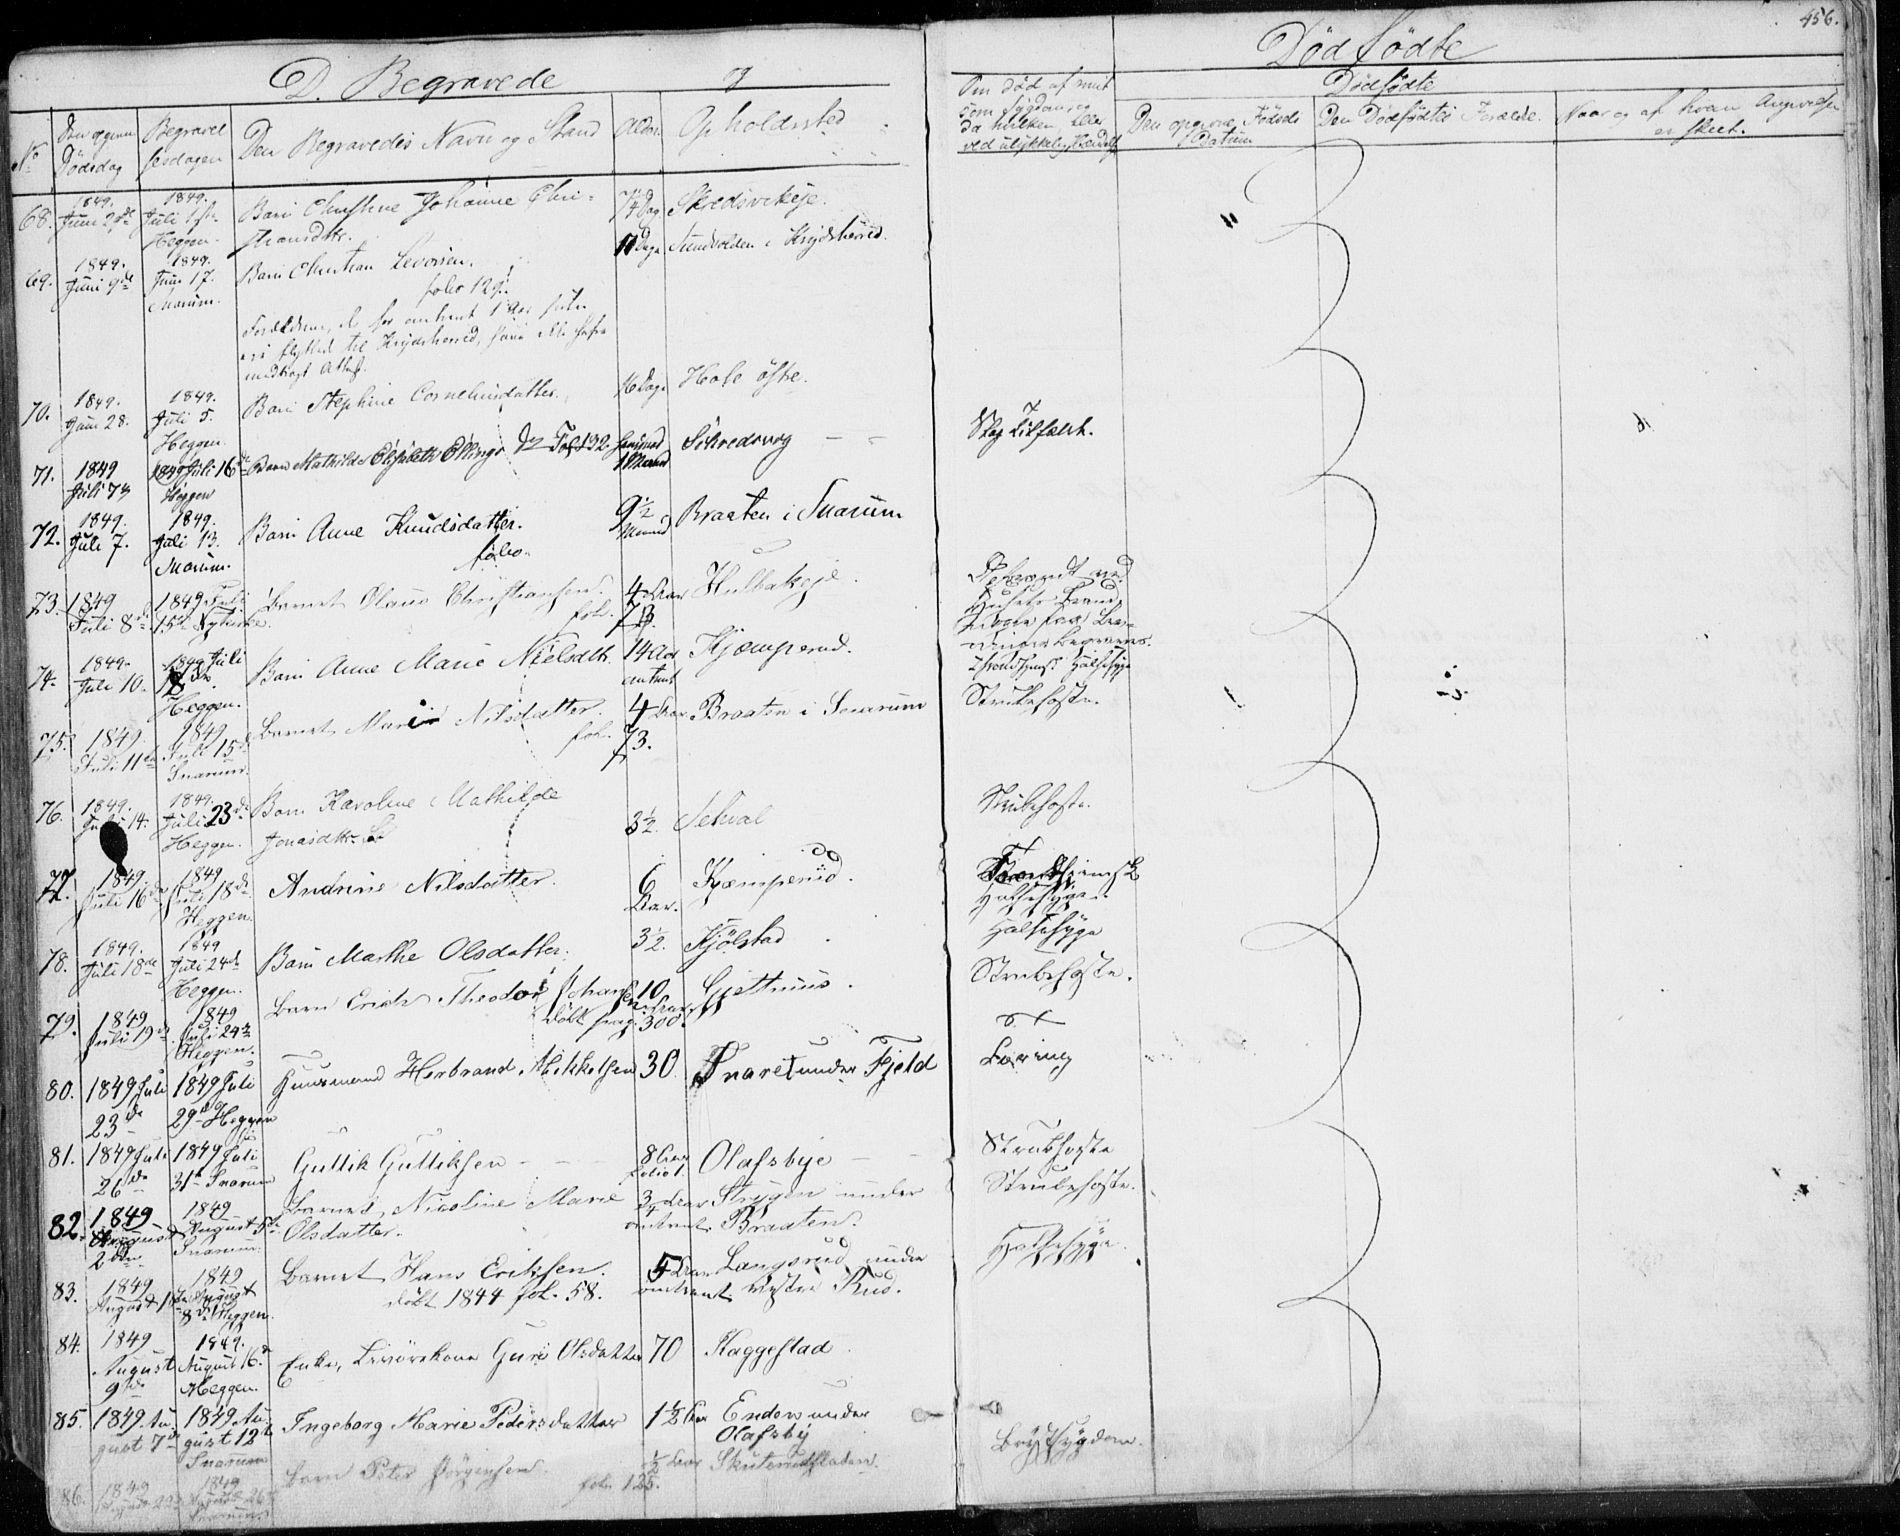 456.
D. Begravede og Dødfødte
No
Den opgivne Dødsdag
Begravelsesdagen
Den Begravedes Navn og Stand
Alder.
Opholdssted
Om død af
som Sygdom, og
da hvilken, eller
ved ulykkelig Hændelse
Dødfødte
Den opgivne Fødsels Datum
Den Dødfødtes Forældre.
Naar og af hvem Angivelsen
er skeet.
68. 1849. Juni 1849. Juli 1ste Heggen.
Barn Christine Johanne Chri-
stiansdtr.
Dag Skredsvikeje.
69. 1849. Juni 9de 1849. Juni 17. Snarum.
Barn Christian Levorsen.
folio 129.
Dage i Krydsherred.
Forældrene, for omtrent 1 Aar siden
ere flyttet til Krydsherred, have ikke
medbragt Attest.
70. 1849. Juni 28. 1849. Juli 5. Heggen.
Barn Stephine Corneliusdatter.
16 Dage Hole østre.
71. 1849 Juli 7de 1849 Juli 16de Heggen
Barn Mathilde Elisabeth Ellings D Fol 132
1 Maaned Skredsvig
Slag Tilfælde.
72. 1849. Juli 7. 1849. Juli 13. Snarum.
Barn Anne Knudsdatter.
folio
9½ Maaned Braaten i Snarum
73. 1849 Juli 8de 1849 Juli 15de Nykirke.
Barnet Olaus Christiansen.
fol. 73.
4 Aar Hulbakeje.
74. 1849. Juli 10. 1849 Juli 18de Heggen.
Barn Anne Marie Nielsdtr.
14 Aar omtrent Kjæmperud.
Halsesyge
75. 1849. Juli 11te 1849 Juli 15de Snarum.
Barnet Marie Nilsdatter.
fol. 73.
4 Aar Braaten i Snarum
Strubehoste.
76. 1849. Juli 14. 1849. Juli 23de Heggen.
Barn Karoline Mathilde
Jonasdtr.
3½.
Strubehoste.
77. 1849. Juli 16de 1849 Juli 18de Heggen.
Andrine Nilsdatter.
6 Aar. Kjæmperud.
Halsesyge.
78. 1849. Juli 18de 1849 Juli 24de Heggen.
Barn Marthe Olsdatter.
3½. Kjølstad
Halsesyge
79. 1849 Juli 19de 1849 Juli 24de Heggen.
Barn Erich Theodor Johansen
døbt pag. 300.
10 Aar
Strubehoste.
80. 1849 Juli 23de 1849 Juli 29de Heggen
Huusmand Herbrand Mikkelsen 30. Snaret under Fjeld
Tæring
81. 1849 Juli 26de 1849 Juli 31te Snarum
Gullik Gulliksen
8 Aar Olafsbye
Strubehoste
82. 1849 August 2den 1849 August 5te Snarum.
Barnet Nicoline Marie
Olsdatter.
¾ Aar omtrent Strygen under
Braaten.
Strubehoste.
83. 1849 August 1849 August 8de Heggen.
Barnet Hans Eriksen.
døbt 1844 fol. 58.
5 Aar omtrent Langerud under
vestre Rud.
Halsesyge.
84. 1849 August 9de 1849. August 16de Heggen.
Enke, Guri Olsdatter 70 Kaggestad
85. 1849. August 7de 1849. August 12te Snarum
Ingeborg Marie Pedersdatter
1½ Aar Enden under
Olafsby
Brystsygdom.
86. 1849 August 1849 August 26 Snarum
Barn Peter Jørgensen.
fol. 125.
½ Aar Skuterudfladen.